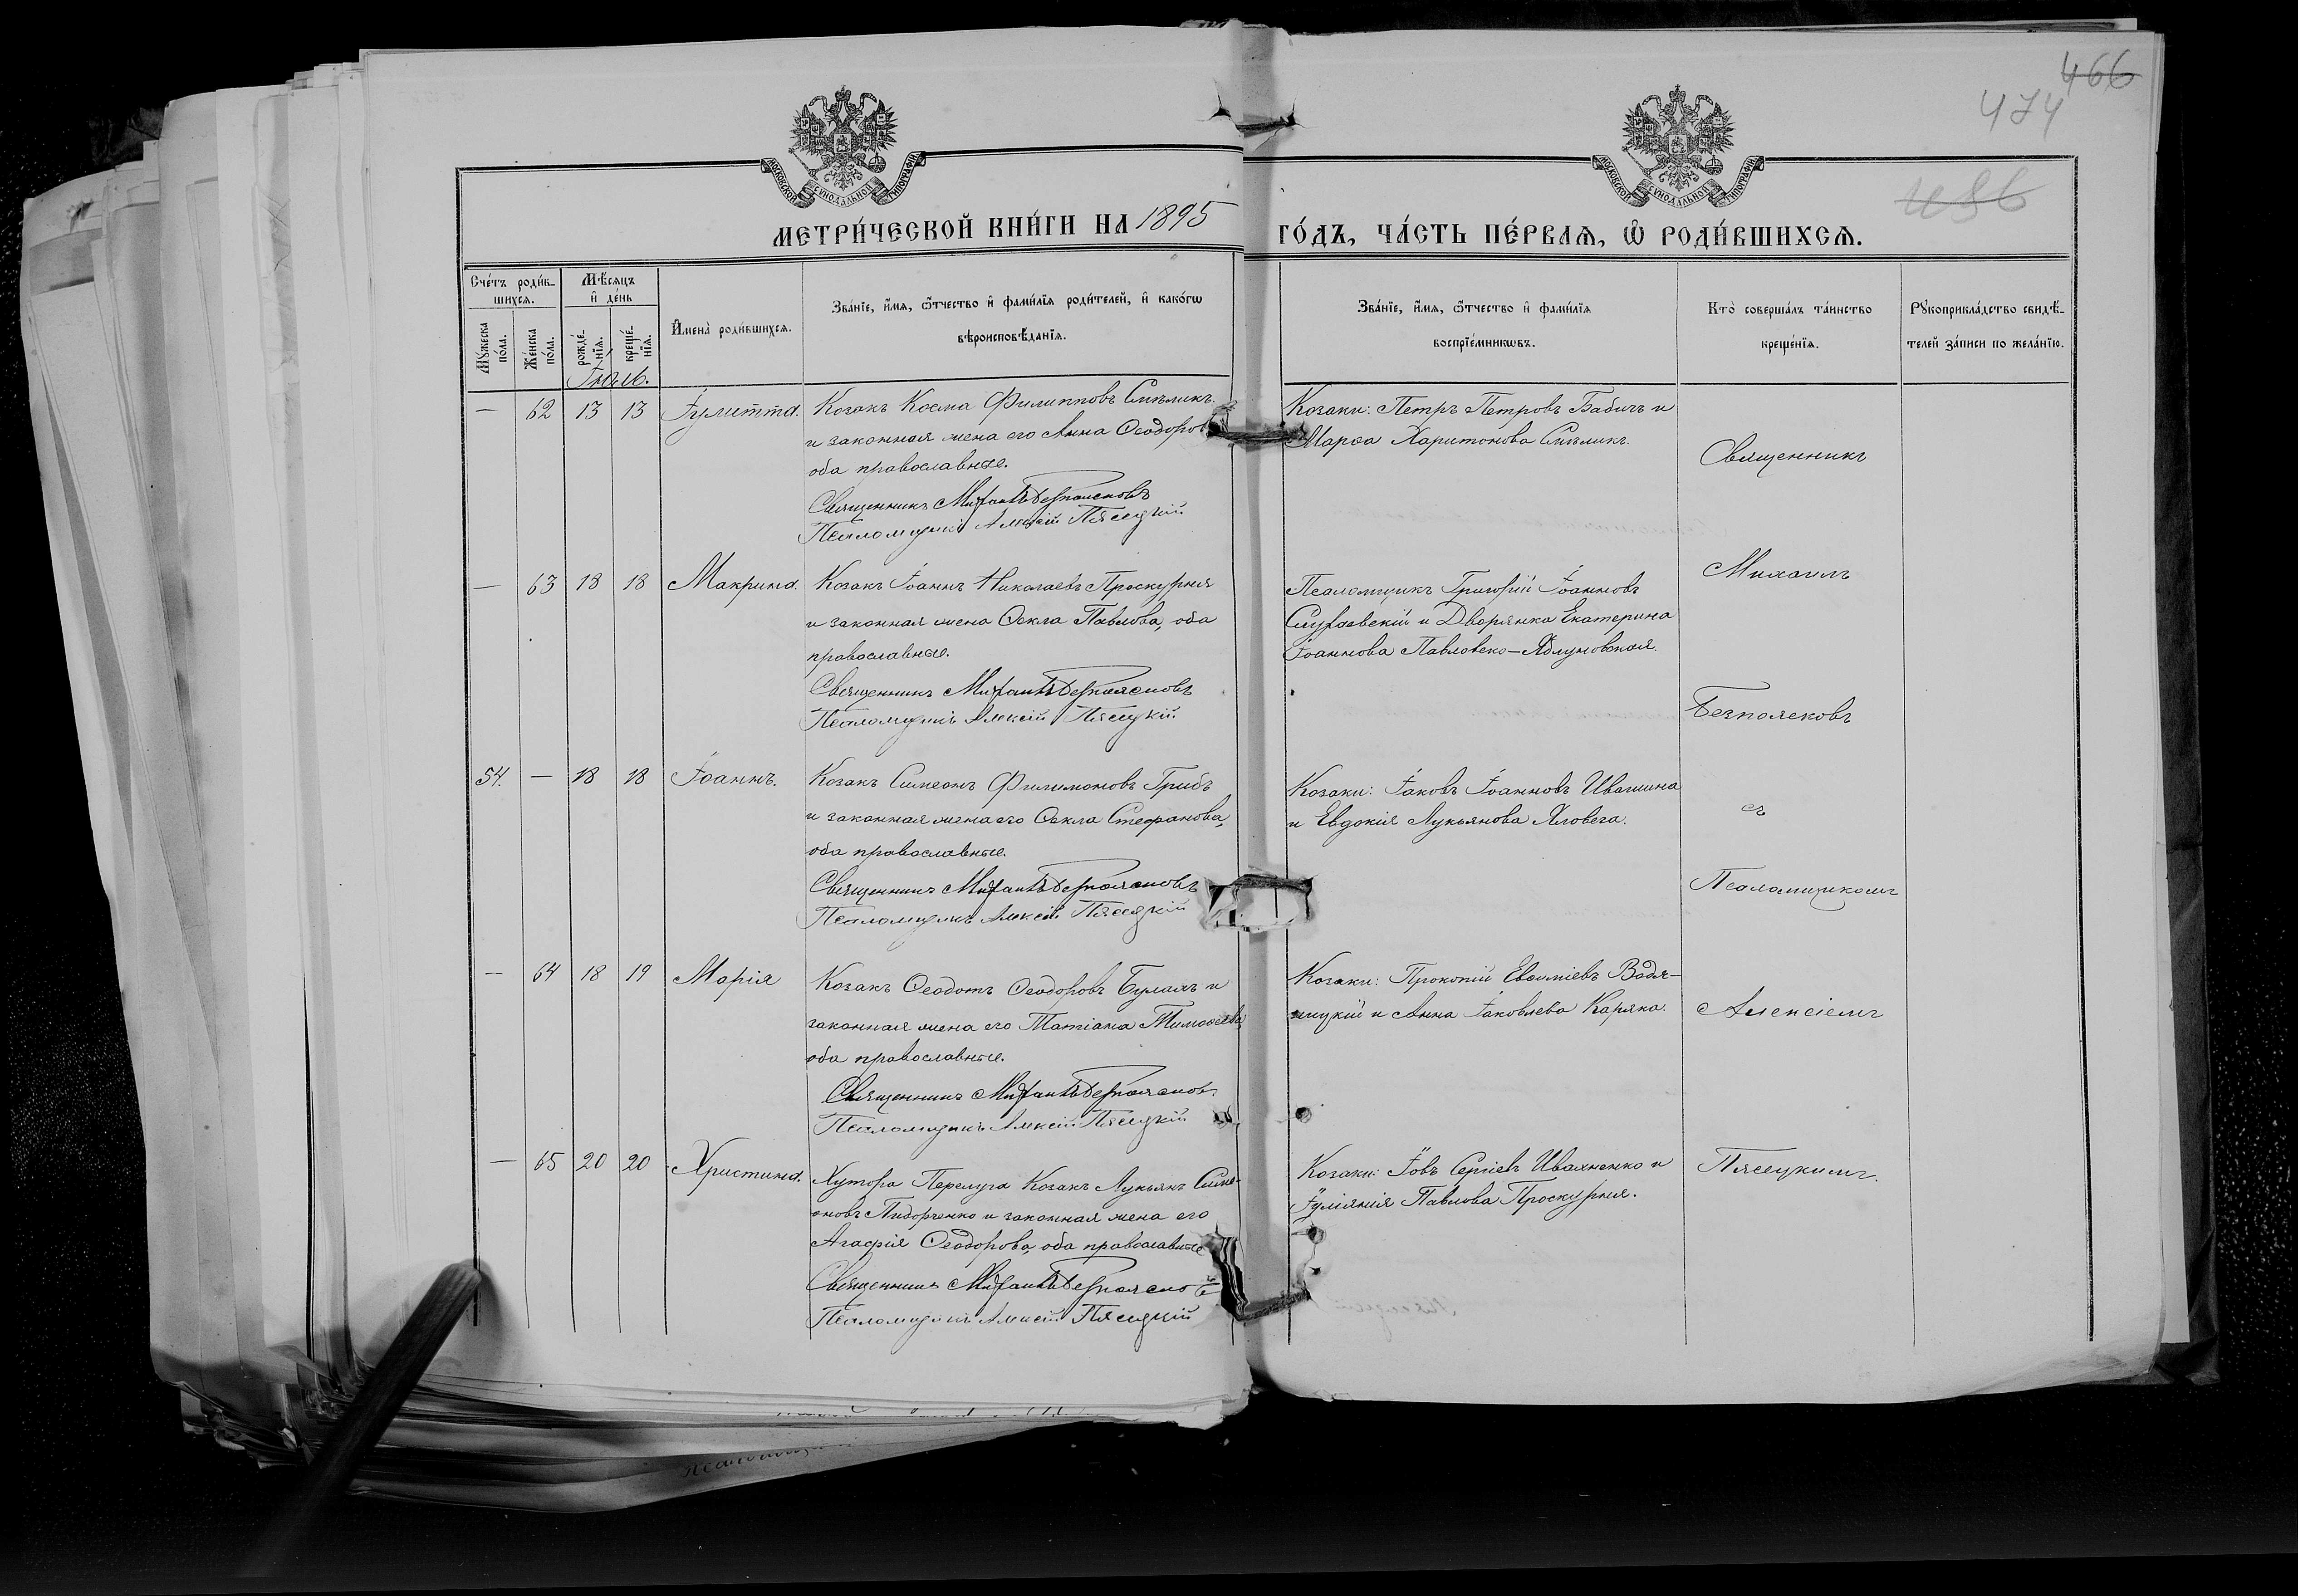 466
474
486
МОСКОВСКОЙ СѴНОДАЛЬНОЙ ТИПОГРАФІИ
МОСКОВСКОЙ СѴНОДАЛЬНОЙ ТИПОГРАФІИ
МЕТРИ́ЧЕСКОЙ КНИ́ГИ НА 1895 ГО́ДЪ, ЧА́СТЬ ПЕ́РВАѦ, Ѽ РОДИ́ВШИХСѦ.
Сче́тъ роди́в-
шихсѧ.
Мꙋ́жеска по́ла.
Же́нска по́ла.
Мѣ́сяцъ
и҆ де́нь
рожде́-нїѧ.
креще́-нїѧ.
И҆мена̀ роди́вшихсѧ.
Зва́нїе, и҆́мѧ, ѻ҆́тчество и҆ фами́лїѧ роди́телей, и҆ како́гѡ
вѣроисповѣ́данїѧ.
Зва́нїе, и҆́мѧ, ѻ҆́тчество и҆ фами́лїѧ
воспрїе́мникѡвъ.
Кто̀ соверша́лъ та́инство
креще́нїѧ.
Рꙋкоприкла́дство свидѣ́-
телей за́писи по жела́нїю.
Іюль.
— 62 13 13 Іулитта. Козакъ Косма Филипповъ Смѣликъ
и законная жена его Анна Ѳеодоров
оба православные.
Священникъ Михаилъ Безпоясковъ
Псаломщикъ Алексій Пясецкій
Козаки: Петръ Петровъ Бабичъ и
Марѳа Харитонова Смѣликъ.
Священникъ
— 63 18 18 Макрина. Козакъ Іоаннъ Николаевъ Проскурня
и законная жена Ѳекла Павлова, оба
православные.
Священникъ Михаилъ Безпоясковъ
Псаломщикъ Алексій Пясецкій
Псаломщикъ Григорій Іоанновъ
и Дворянка Екатерина
Іоаннова Павловско-
Михаилъ
Безпоясковъ
54. — 18 18 Іоаннъ. Козакъ Симеонъ Филимоновъ Грибъ
и законная жена его Ѳекла Стефанова,
оба православные.
Священникъ Михаилъ Безпоясковъ
Псаломщикъ Алексій Пясецкій
Козаки: Іаковъ Іоанновъ Ивашина
и Евдокія Лукьянова Яловега.
съ
Псаломщикомъ
— 64 18 19 Марія Козакъ Ѳеодотъ Ѳеодоровъ Булахъ и
законная жена его Татіана Тимоѳеева
оба православные.
Священникъ Михаилъ Безпоясков
Псаломщикъ Алексій Пясецкій
Козаки: Прокопій Евѳиміевъ Водя-
ницкій и Анна Іаковлева Каряка.
Алексіемъ
— 65 20 20 Христина. Хутора Перелуга Козакъ Лукьянъ Симе-
оновъ и законная жена его
Агафія Ѳеодорова, оба православные
Священникъ Михаилъ Безпоясковъ
Псаломщикъ Алексій Пясецкій
Козаки: Іовъ Сергіевъ Ивахненко и
Іуліянія Павлова Проскурня.
Пясецкимъ.